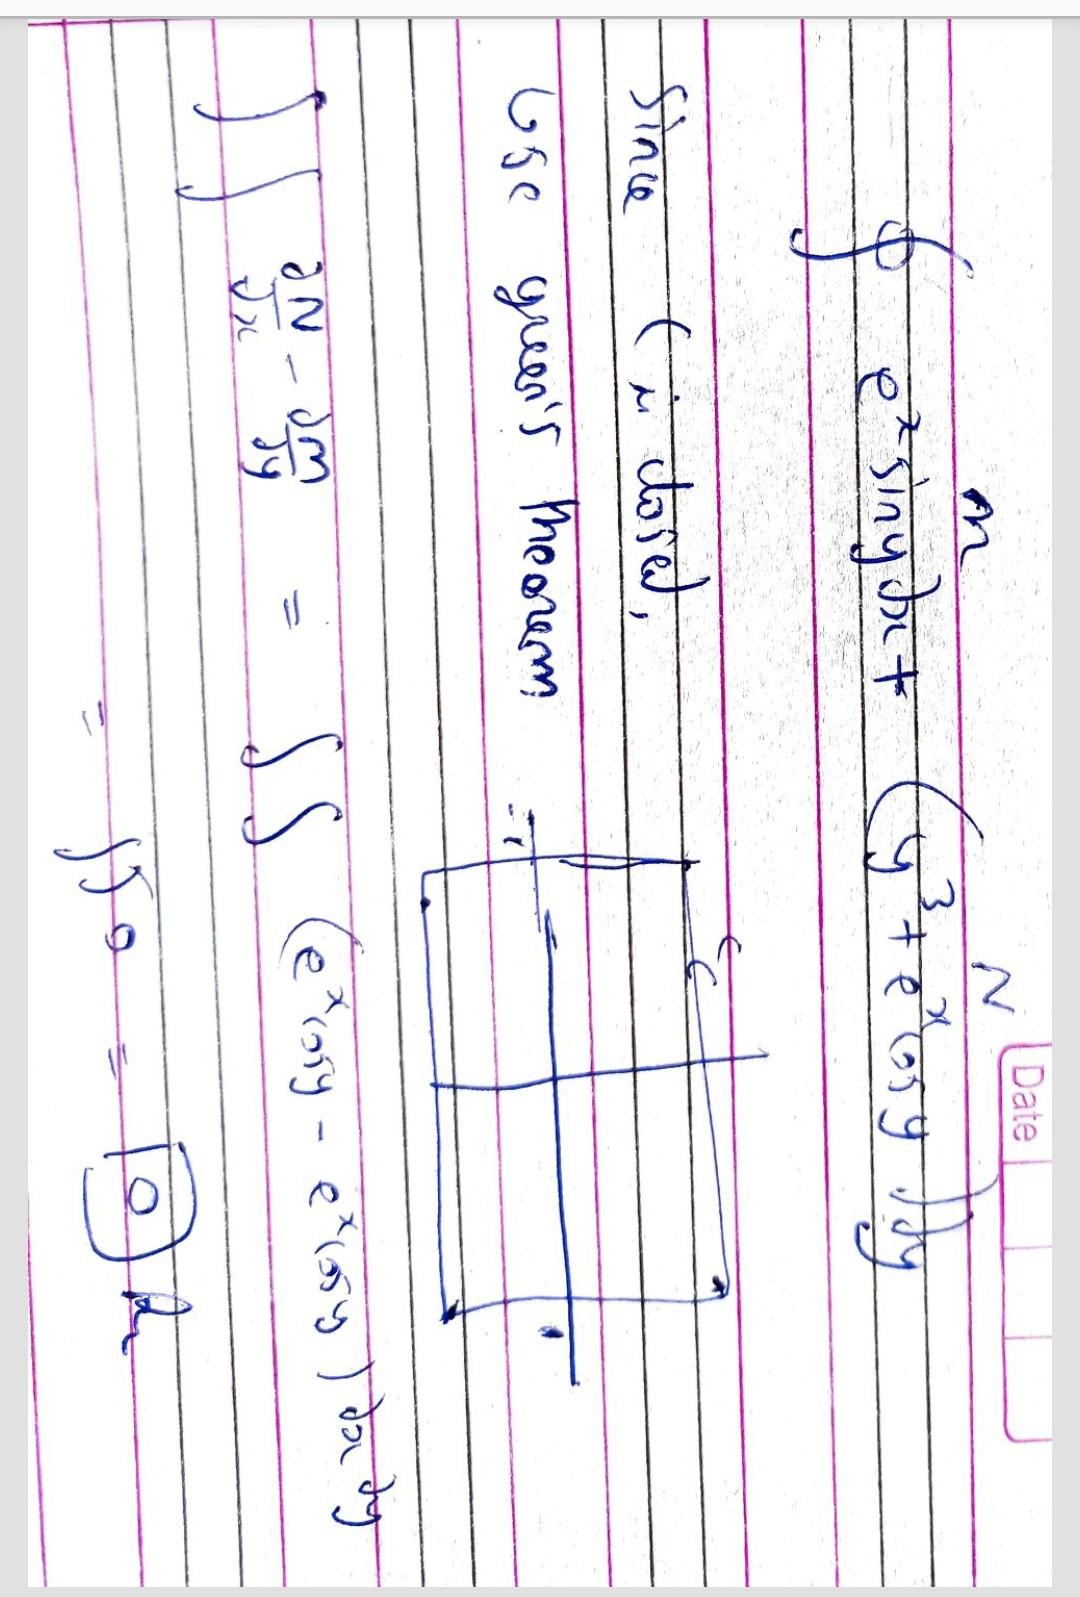 Date
M N
∮ e^x siny dx + (y^3 + e^x cosy) dy
Since C is closed,
Use green's theorem
C
-1 1
∫∫ ∂N/∂x - ∂M/∂y = ∫∫ (e^x cosy - e^x cosy) dx dy
= ∫∫ 0 = 0